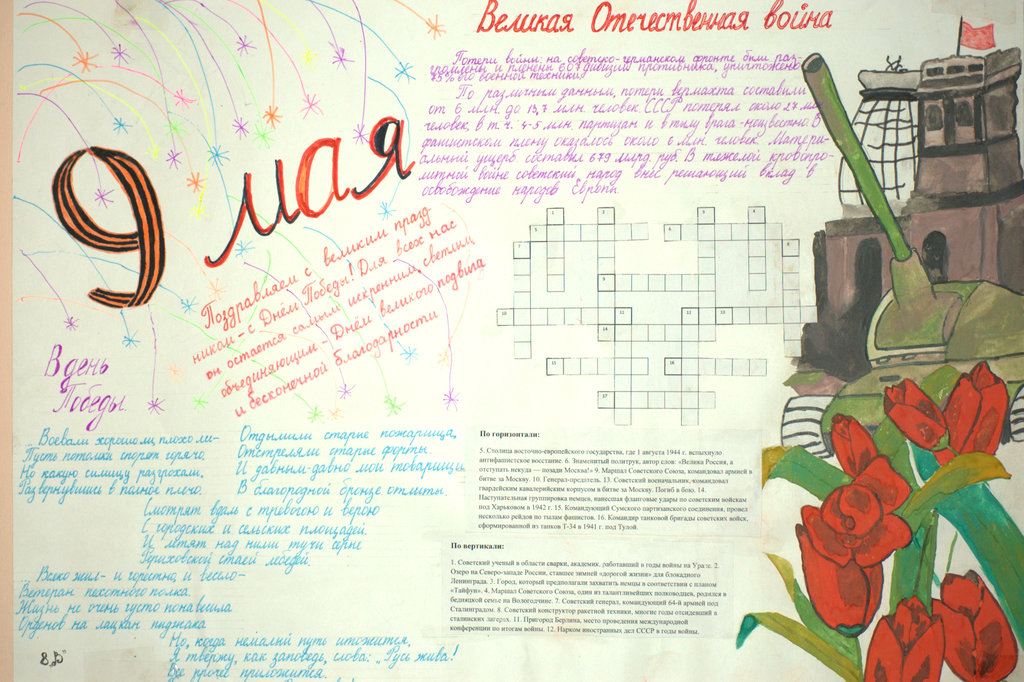 Великая Отечественная война
Потери войны: на советско-германском фронте были раз-
громлены и пленены 607 дивизий противника, уничтожено
75% его военной техники.
По различным данным, потери вермахта составили
от 6 млн. до 13,7 млн. человек. СССР потерял около 27 млн
человек, в т. ч. 4-5 млн. партизан и в тылу врага - неизвестно. В
фашистском плену оказалось около 6 млн. человек. Матери-
альный ущерб составил 679 млрд. руб. В тяжелой кровопро-
литной войне советский народ внёс решающий вклад в
освобождение народов Европы.
9 мая
Поздравляем с великим празд-
ником - с Днём Победы! Для всех нас
он остается самым искренним, светлым,
объединяющим - Днём великого подвига
и бесконечной благодарности
В день
Победы.
... Воевали хорошо ли, плохо ли -
Пусть потомки спорят горячо.
Но какую силищу разгрохали,
Развернувшись в полное плечо.
Отдымили старые пожарища,
Отстреляли старые форты.
И давным-давно мои товарищи
В благородной бронзе отлиты.
Смотрят вдаль с тревогою и верою
С городских и сельских площадей.
И летят над ними тучи серые
Журавлиной стаей лебедей.
... Всяко жил - и горестно, и весело -
Ветеран пехотного полка.
Жизнь не очень густо понавесила
Орденов на лацкан пиджака
Но, когда немалый путь итожится,
Я твержу, как заповедь, слова: „Русь жива!
Все прочее приложится.
8 „В"
1
2
3
4
5
6
7
8
9
10
11
12
13
14
15
16
17
По горизонтали:
5. Столица восточно-европейского государства, где 1 августа 1944 г. вспыхнуло
антифашистское восстание. 6. Знаменитый политрук, автор слов: «Велика Россия, а
отступать некуда — позади Москва!» 9. Маршал Советского Союза, командовал армией в
битве за Москву. 10. Генерал-предатель. 13. Советский военачальник, командовал
гвардейским кавалерийским корпусом в битве за Москву. Погиб в бою. 14.
Наступательная группировка немцев, нанесшая фланговые удары по советским войскам
под Харьковом в 1942 г. 15. Командующий Сумского партизанского соединения, провел
несколько рейдов по тылам фашистов. 16. Командир танковой бригады советских войск,
сформированной из танков Т-34 в 1941 г. под Тулой.
По вертикали:
1. Советский ученый в области сварки, академик, работавший в годы войны на Урале. 2.
Озеро на Северо-западе России, ставшее зимней «дорогой жизни» для блокадного
Ленинграда. 3. Город, который предполагали захватить немцы в соответствии с планом
«Тайфун». 4. Маршал Советского Союза, один из талантливейших полководцев, родился в
бедняцкой семье на Вологодчине. 7. Советский генерал, командующий 64-й армией под
Сталинградом. 8. Советский конструктор ракетной техники, многие годы отсидевший в
сталинских лагерях. 11. Пригород Берлина, место проведения международной
конференции по итогам войны. 12. Нарком иностранных дел СССР в годы войны.